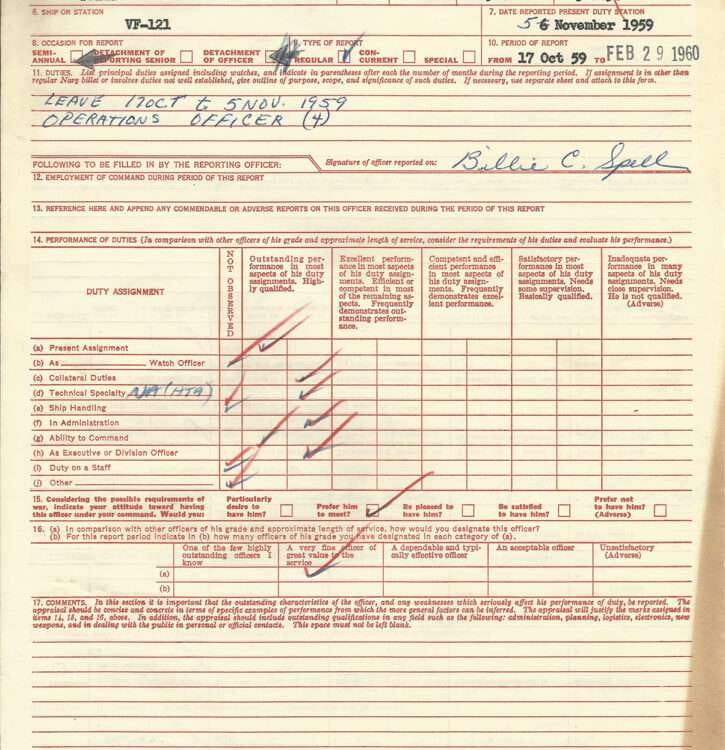 6. SHIP OR STATION
VF-121
7. DATE REPORTED PRESENT DUTY STATION
5 6 November 1959
8. OCCASION FOR REPORT
SEMI-ANNUAL
DETACHMENT OF REPORTING SENIOR
DETACHMENT OF OFFICER
9. TYPE OF REPORT
REGULAR
CON-CURRENT
SPECIAL
10. PERIOD OF REPORT
FROM 17 Oct 59 TO FEB 29 1960
11. DUTIES. List principal duties assigned including watches, and indicate in parentheses after each the number of months during the reporting period. If assignment is in other than
regular Navy billet or involves duties not well established, give outline of purpose, scope, and significance of such duties. If necessary, use separate sheet and attach to this form.
LEAVE 17 OCT to 5 NOV. 1959
OPERATIONS OFFICER (4)
FOLLOWING TO BE FILLED IN BY THE REPORTING OFFICER:
Signature of officer reported on: Billie C. Spell
12. EMPLOYMENT OF COMMAND DURING PERIOD OF THIS REPORT
13. REFERENCE HERE AND APPEND ANY COMMENDABLE OR ADVERSE REPORTS ON THIS OFFICER RECEIVED DURING THE PERIOD OF THIS REPORT
14. PERFORMANCE OF DUTIES (In comparison with other officers of his grade and approximate length of service, consider the requirements of his duties and evaluate his performance.)
DUTY ASSIGNMENT
NOT OBSERVED
Outstanding per-
formance in most
aspects of his duty
assignments. High-
ly qualified.
Excellent perform-
ance in most aspects
of his duty assign-
ments. Efficient or
competent in most
of the remaining as-
pects. Frequently
demonstrates out-
standing perform-
ance.
Competent and effi-
cient performance
in most aspects of
his duty assign-
ments. Frequently
demonstrates excel-
lent performance.
Satisfactory per-
formance in most
aspects of his duty
assignments. Needs
some supervision.
Basically qualified.
Inadequate per-
formance in many
aspects of his duty
assignments. Needs
close supervision.
He is not qualified.
(Adverse)
(a) Present Assignment
(b) As Watch Officer
(c) Collateral Duties
(d) Technical Specialty NA (HTA)
(e) Ship Handling
(f) In Administration
(g) Ability to Command
(h) As Executive or Division Officer
(i) Duty on a Staff
(j) Other
15. Considering the possible requirements of
war, indicate your attitude toward having
this officer under your command. Would you:
Particularly
desire to
have him?
Prefer him
to most?
Be pleased to
have him?
Be satisfied
to have him?
Prefer not
to have him?
(Adverse)
16. (a) In comparison with other officers of his grade and approximate length of service, how would you designate this officer?
(b) For this report period indicate in (b) how many officers of his grade you have designated in each category of (a).
One of the few highly
outstanding officers I
know
A very fine officer of
great value to the
service
A dependable and typi-
cally effective officer
An acceptable officer
Unsatisfactory
(Adverse)
(a)
(b)
17. COMMENTS. In this section it is important that the outstanding characteristics of the officer, and any weaknesses which seriously affect his performance of duty, be reported. The
appraisal should be concise and concrete in terms of specific examples of performance from which the more general factors can be inferred. The appraisal will justify the marks assigned in
items 14, 15, and 16, above. In addition, the appraisal should include outstanding qualifications in any field such as the following: administration, planning, logistics, electronics, new
weapons, and in dealing with the public in personal or official contacts. This space must not be left blank.